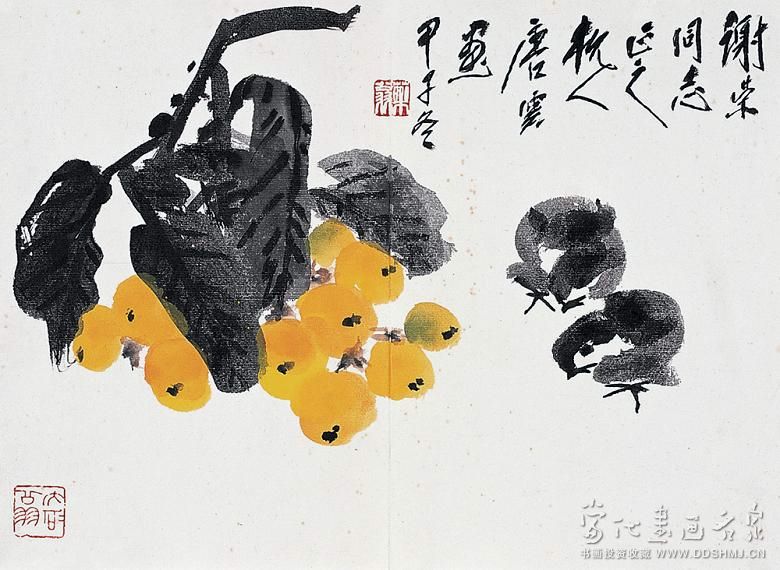 谢荣
同志
正之
杭人
唐雲
画
甲子冬
药翁
大石翁
当代书画名家
书画投资收藏 WWW.DDSHMJ.CN